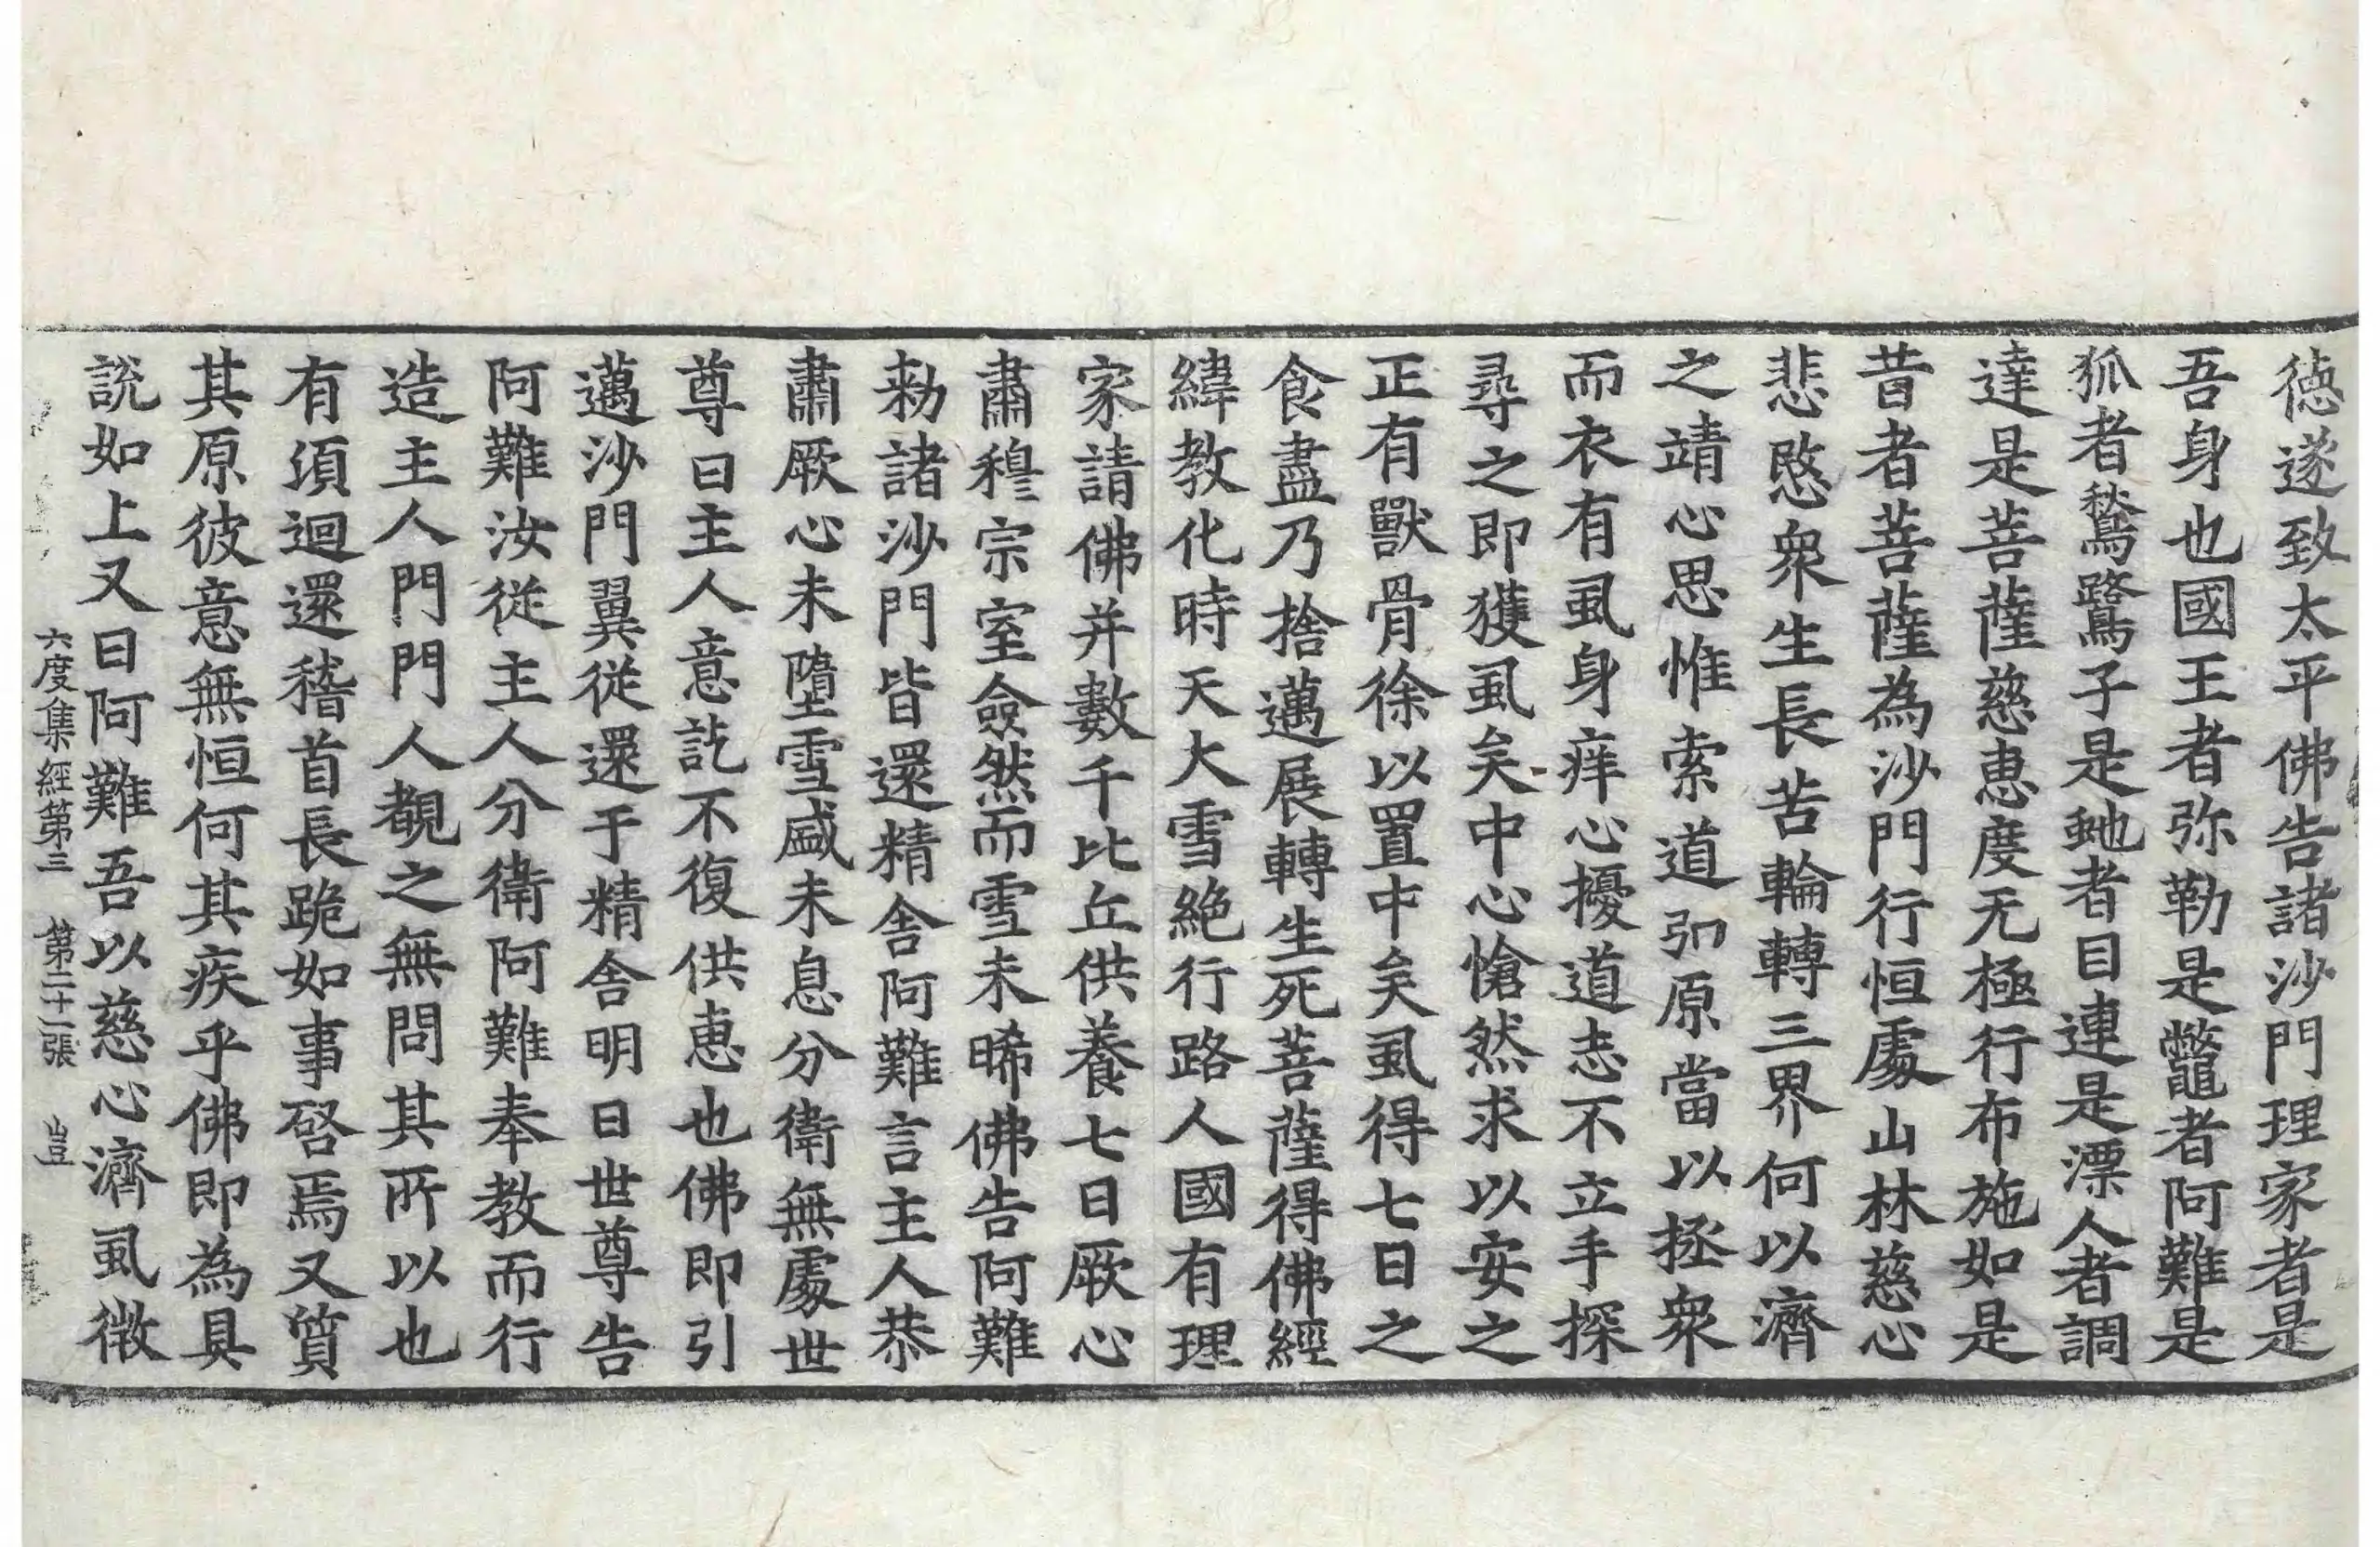 德遂致太平佛告諸沙門理家者是
吾身也國王者弥勒是鼈者阿難是
狐者鶖鷺子是虵者目連是漂人者調
達是菩薩慈惠度无極行布施如是
昔者菩薩為沙門行恒處山林慈心
悲愍衆生長苦輪轉三界何以濟
之靖心思惟索道弘原當以拯衆
而衣有虱身痒心擾道志不立手探
尋之即獲虱矣中心愴然求以安之
正有獸骨徐以置中矣虱得七日之
食盡乃捨邁展轉生死菩薩得佛經
緯教化時天大雪絶行路人國有理
家請佛并數千比丘供養七日厥心
肅穆宗室僉然而雪未晞佛告阿難
勑諸沙門皆還精舍阿難言主人恭
肅厥心未墮雪盛未息分衛無處世
尊曰主人意訖不復供恵也佛即引
邁沙門翼從還于精舍明日世尊告
阿難汝從主人分衛阿難奉教而行
造主人門門人覩之無問其所以也
有須迴還稽首長跪如事啓焉又質
其原彼意無恒何其疾乎佛即為具
說如上又曰阿難吾以慈心濟虱微
六度集經第三 第二十一張 豈